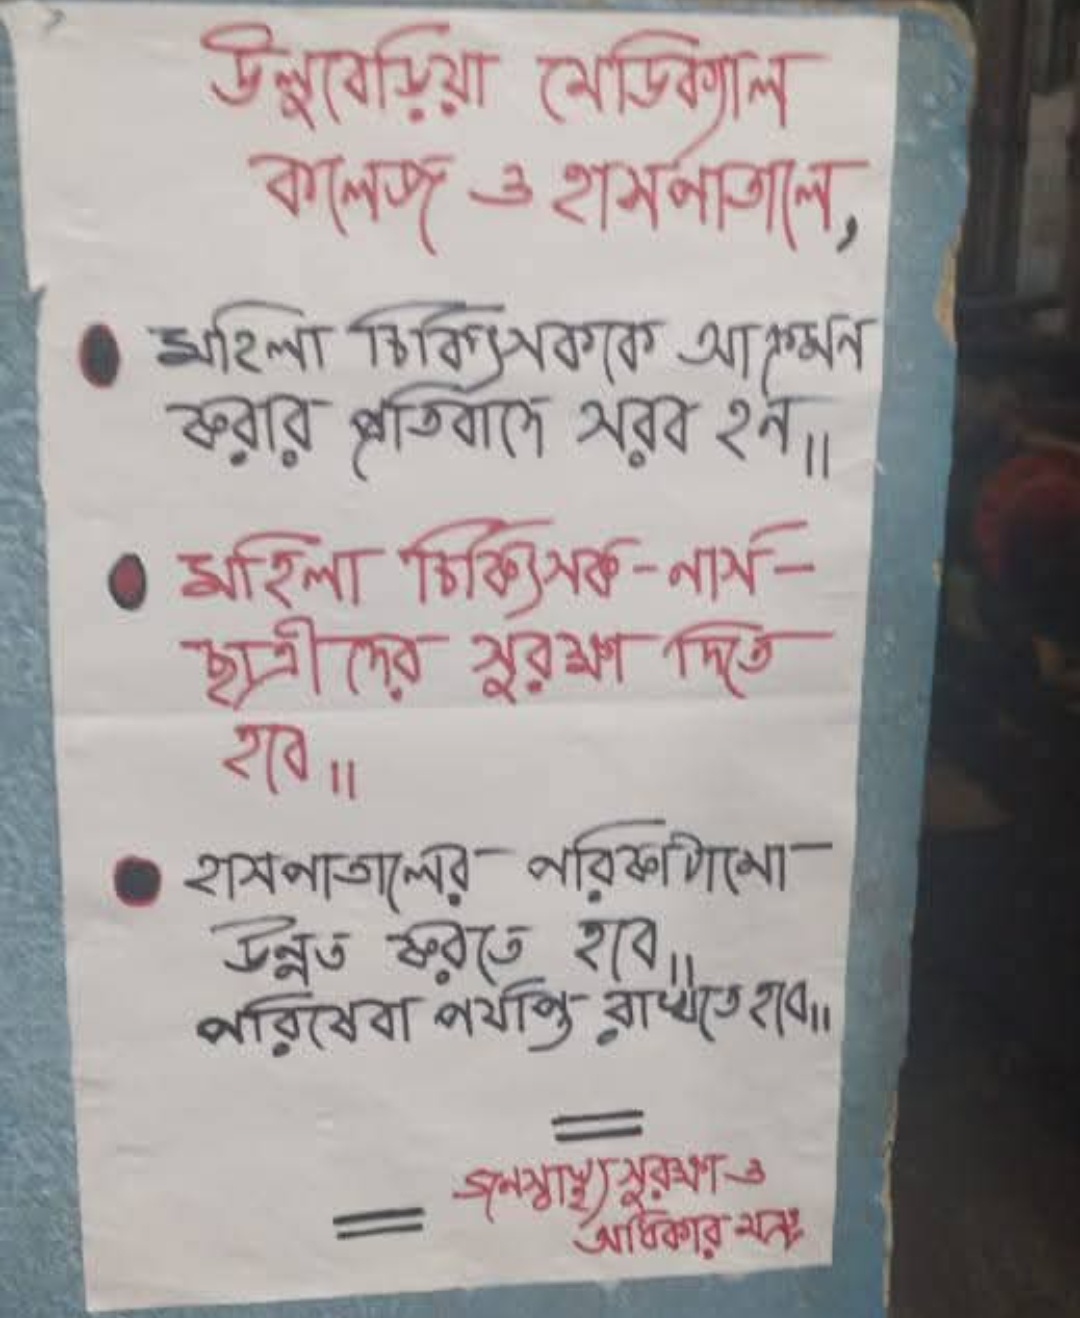 উলুবেড়িয়া মেডিক্যাল
কলেজ ও হাসপাতালে,
মহিলা চিকিৎসককে আক্রমন
করার প্রতিবাদে সরব হন॥
মহিলা চিকিৎসক-নার্স-
ছাত্রীদের সুরক্ষা দিতে
হবে॥
হাসপাতালের পরিকাঠামো
উন্নত করতে হবে॥
পরিষেবা পর্যাপ্ত রাখতে হবে॥
জনস্বাস্থ্য সুরক্ষা ও
অধিকার মঞ্চ